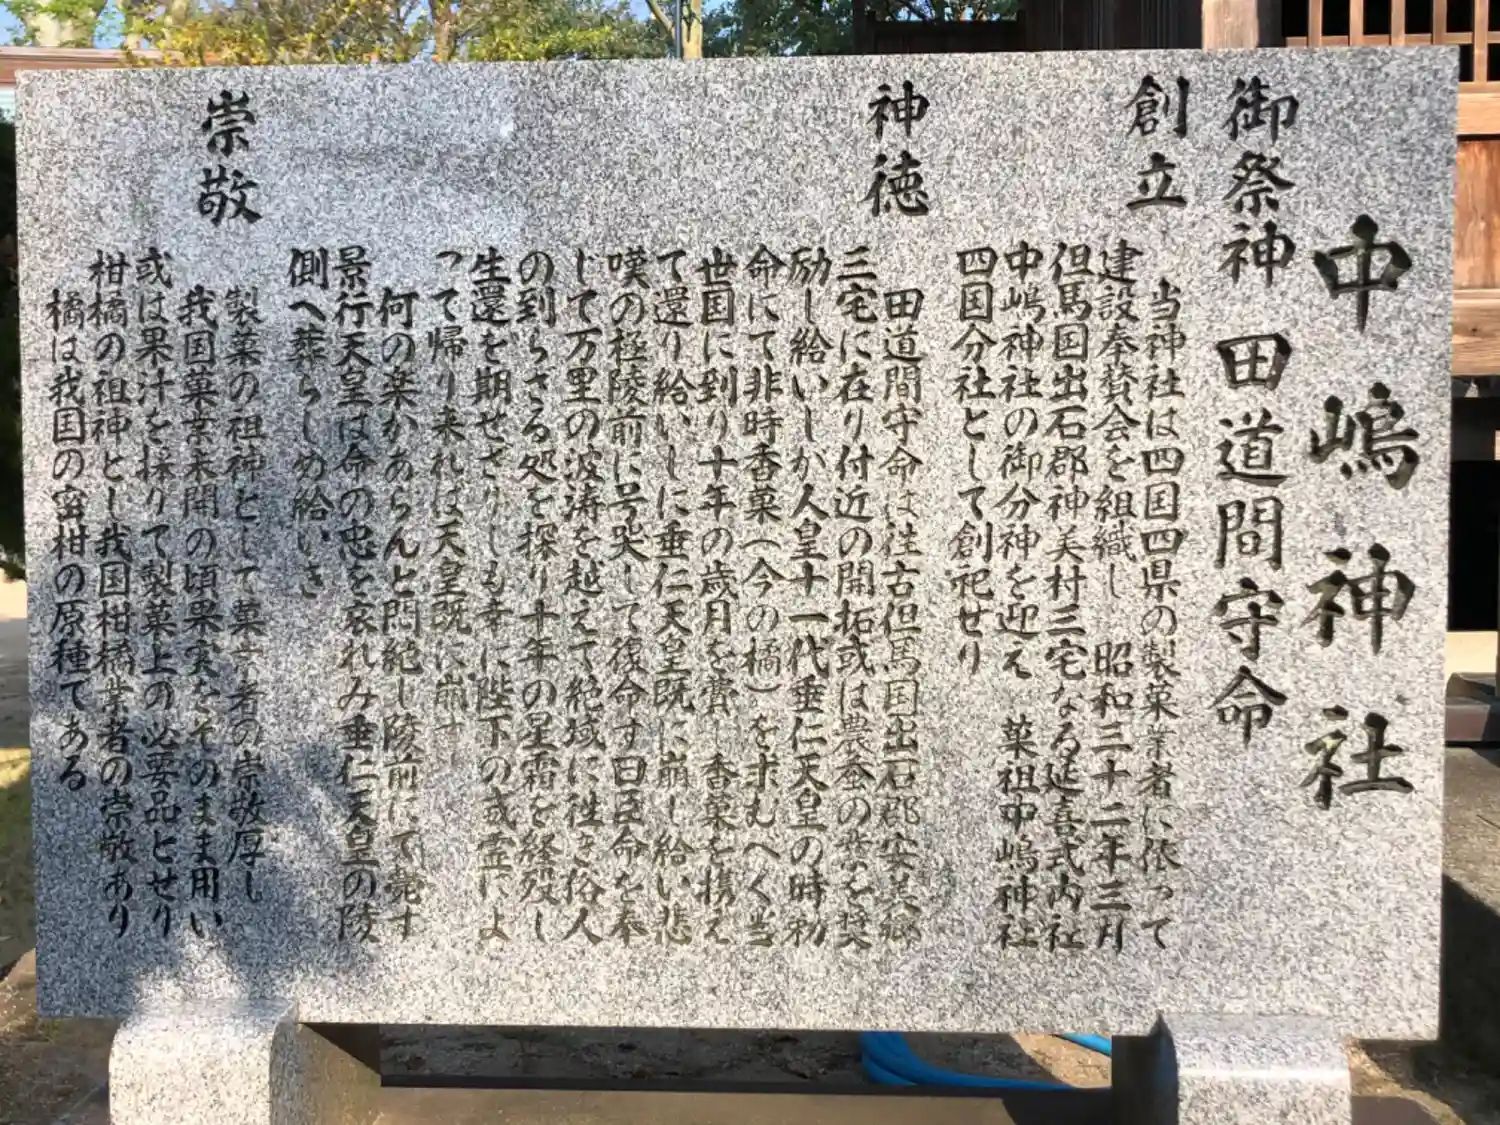 中嶋神社
御祭神 田道間守命
創立
当神社は四国四県の製菓業者に依って
建設奉賛会を組織し 昭和三十二年三月
但馬国出石郡神美村三宅なる延喜式内社
中嶋神社の御分神を迎え 菓祖中嶋神社
四国分社として創祀せり
神徳
田道間守命は往古但馬国出石郡安美郷
三宅に在り付近の開拓或は農蚕の業を奨
励し給いしが人皇十一代垂仁天皇の時勅
命にて非時香菓(今の橘)を求むべく当
世国に到り十年の歳月を費し香菓を携え
て還り給いしに垂仁天皇既に崩し給い悲
嘆の極陵前に号哭して復命す曰臣命を奉
じて万里の波涛を越えて絶域に往き俗人
の到らざる処を探り十年の星霜を経歿し
生還を期せざりしも幸に陛下の威霊によ
って帰り来れば天皇既に崩す
何の楽かあらんと悶絶し陵前にて薨す
景行天皇は命の忠を哀れみ垂仁天皇の陵
側へ葬らしめ給いき
崇敬
製菓の祖神として菓業者の崇敬厚し
我国菓業未開の頃果実をそのまま用い
或は果汁を採りて製菓上の必要品とせり
柑橘の祖神とし我国柑橘業者の崇敬あり
橘は我国の蜜柑の原種である